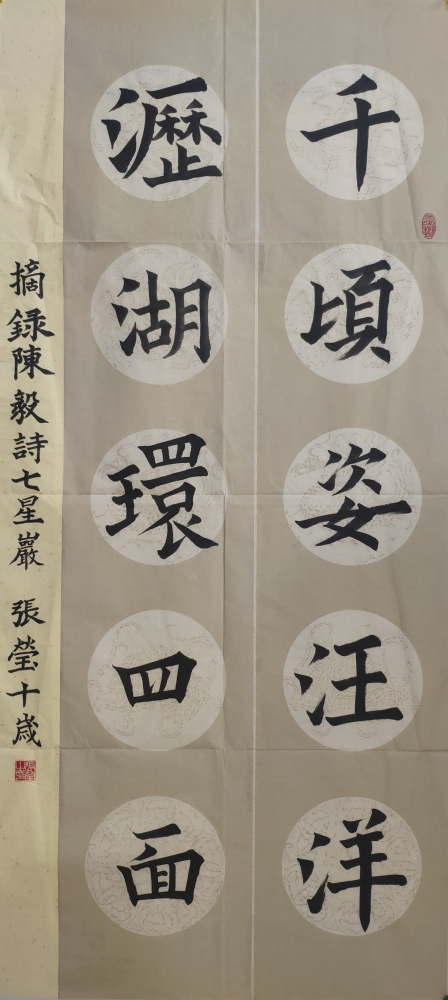 千頃姿汪洋
瀝湖環四面
摘録陳毅詩七星巖 張瑩十歲